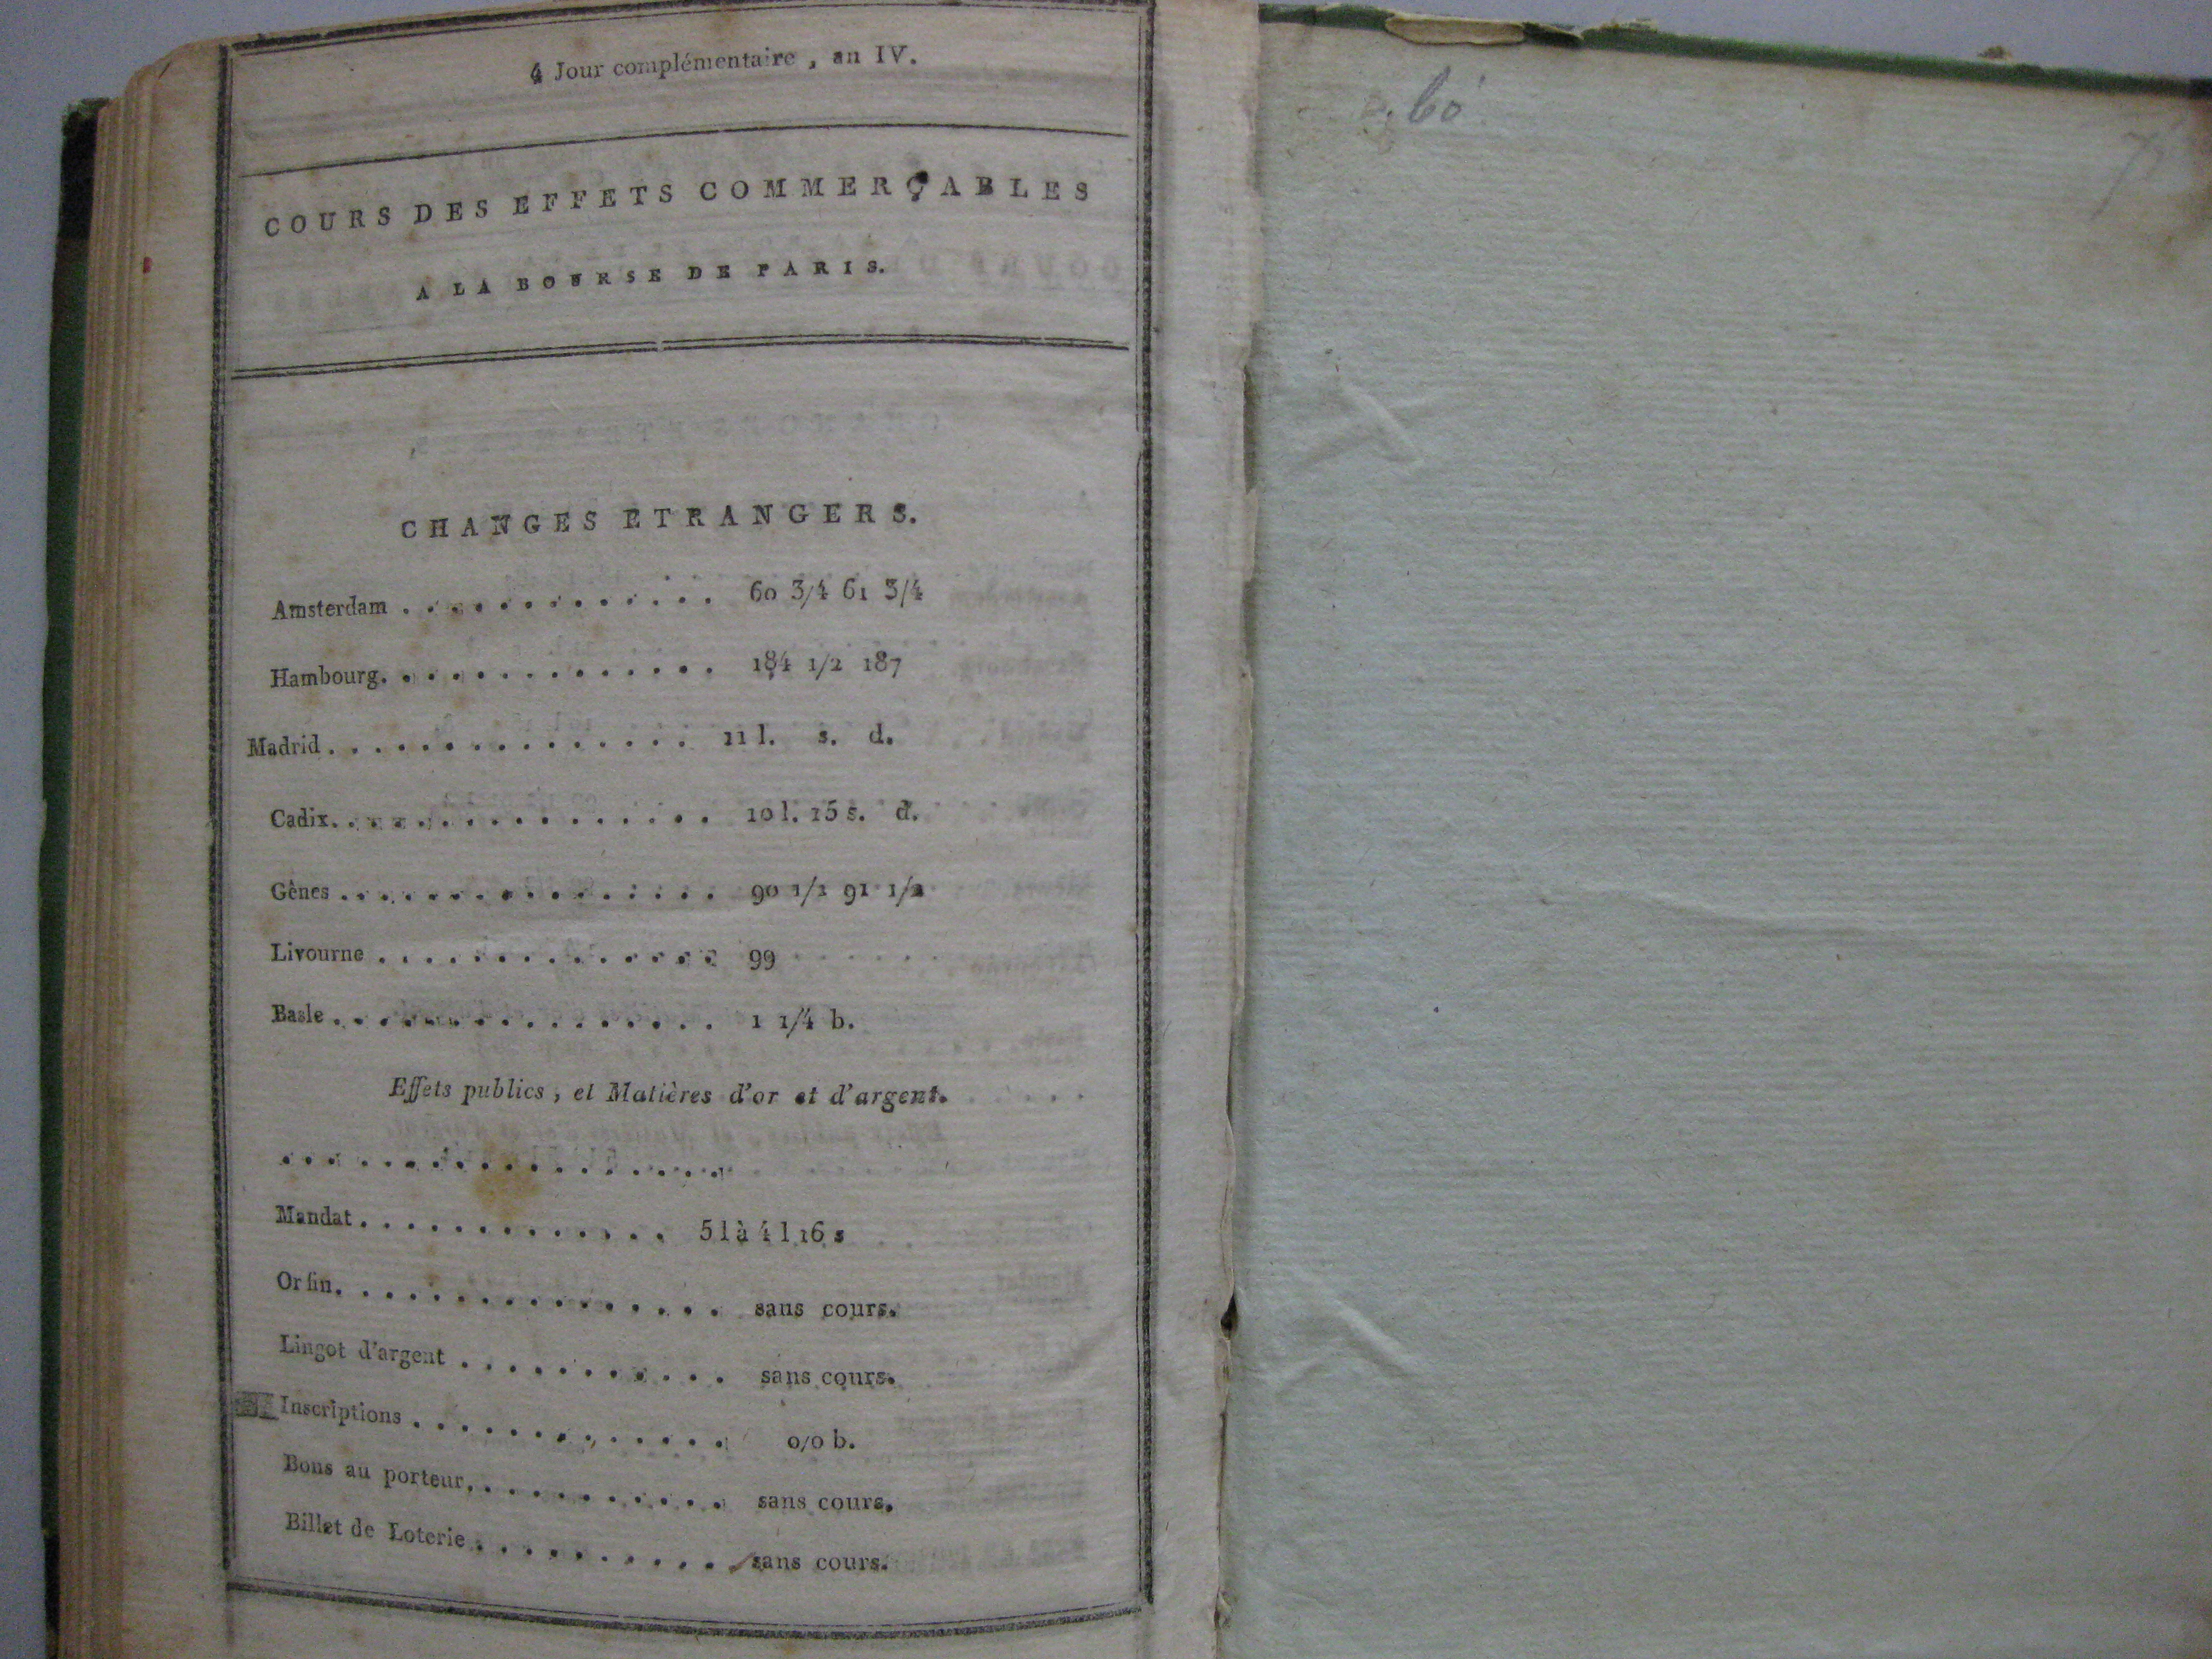 4 Jour complémentaire, an IV.
COURS DES EFFETS COMMERÇABLES
A LA BOURSE DE PARIS.
CHANGES ETRANGERS.
Amsterdam . . . . . . . . . . . . . 60 3/4 61 3/4
Hambourg. . . . . . . . . . . . . . 184 1/2 187
Madrid . . . . . . . . . . . . . . . 11 l. s. d.
Cadix. . . . . . . . . . . . . . . . 10 l. 15 s. d.
Gênes . . . . . . . . . . . . . . . 90 1/2 91 1/2
Livourne . . . . . . . . . . . . . . 99
Basle . . . . . . . . . . . . . . . 1 1/4 b.
Effets publics, et Matières d'or et d'argent.
. . . . . . . . . . . . . . . . . .
Mandat . . . . . . . . . . . . . 5 l à 4 l 16 s
Or fin. . . . . . . . . . . . . . . . sans cours.
Lingot d'argent . . . . . . . . . . . sans cours.
Inscriptions . . . . . . . . . . . . . 0/0 b.
Bons au porteur. . . . . . . . . . . . sans cours.
Billet de Loterie . . . . . . . . . . . sans cours.